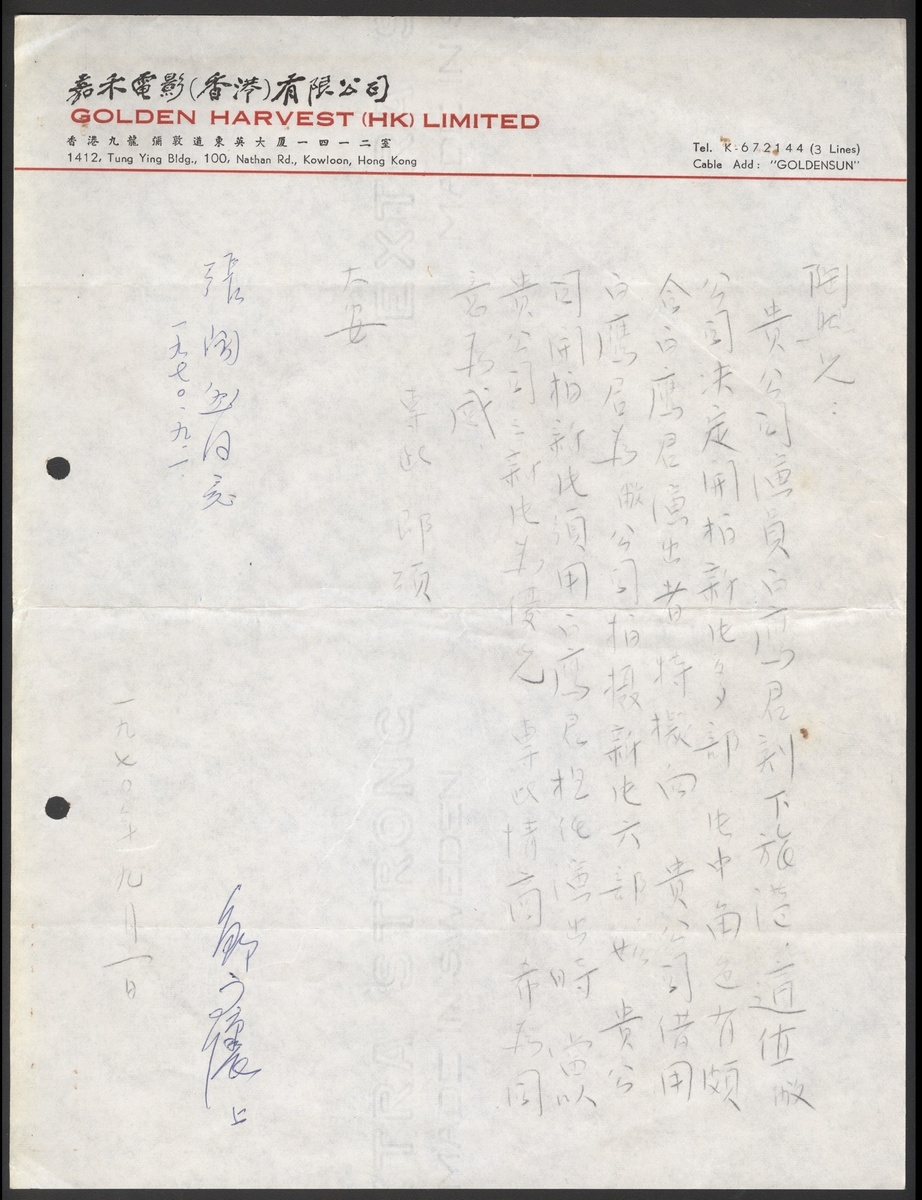 嘉禾電影(香港)有限公司
GOLDEN HARVEST (HK) LIMITED
香港九龍彌敦道東英大厦一四一二室
1412, Tung Ying Bldg., 100, Nathan Rd., Kowloon, Hong Kong
Tel. K-672144 (3 Lines)
Cable Add: "GOLDENSUN"
陶然兄:
貴公司演員白鷹君刻下旅港,適值敝
公司決定開拍新片多部,片中角色有頗
合白鷹君演出者,特擬向 貴公司借用
白鷹君為敝公司拍攝新片六部,如 貴公
司開拍新片須用白鷹君担任演出時,當以
貴公司之新片為優先,專此情商,希為同
意為感
專此 即頌
大安
鄒文懷上
張陶然同意
一九七〇、九、二
一九七〇年九月一日
EXTRA STRONG
MADE IN SWEDEN